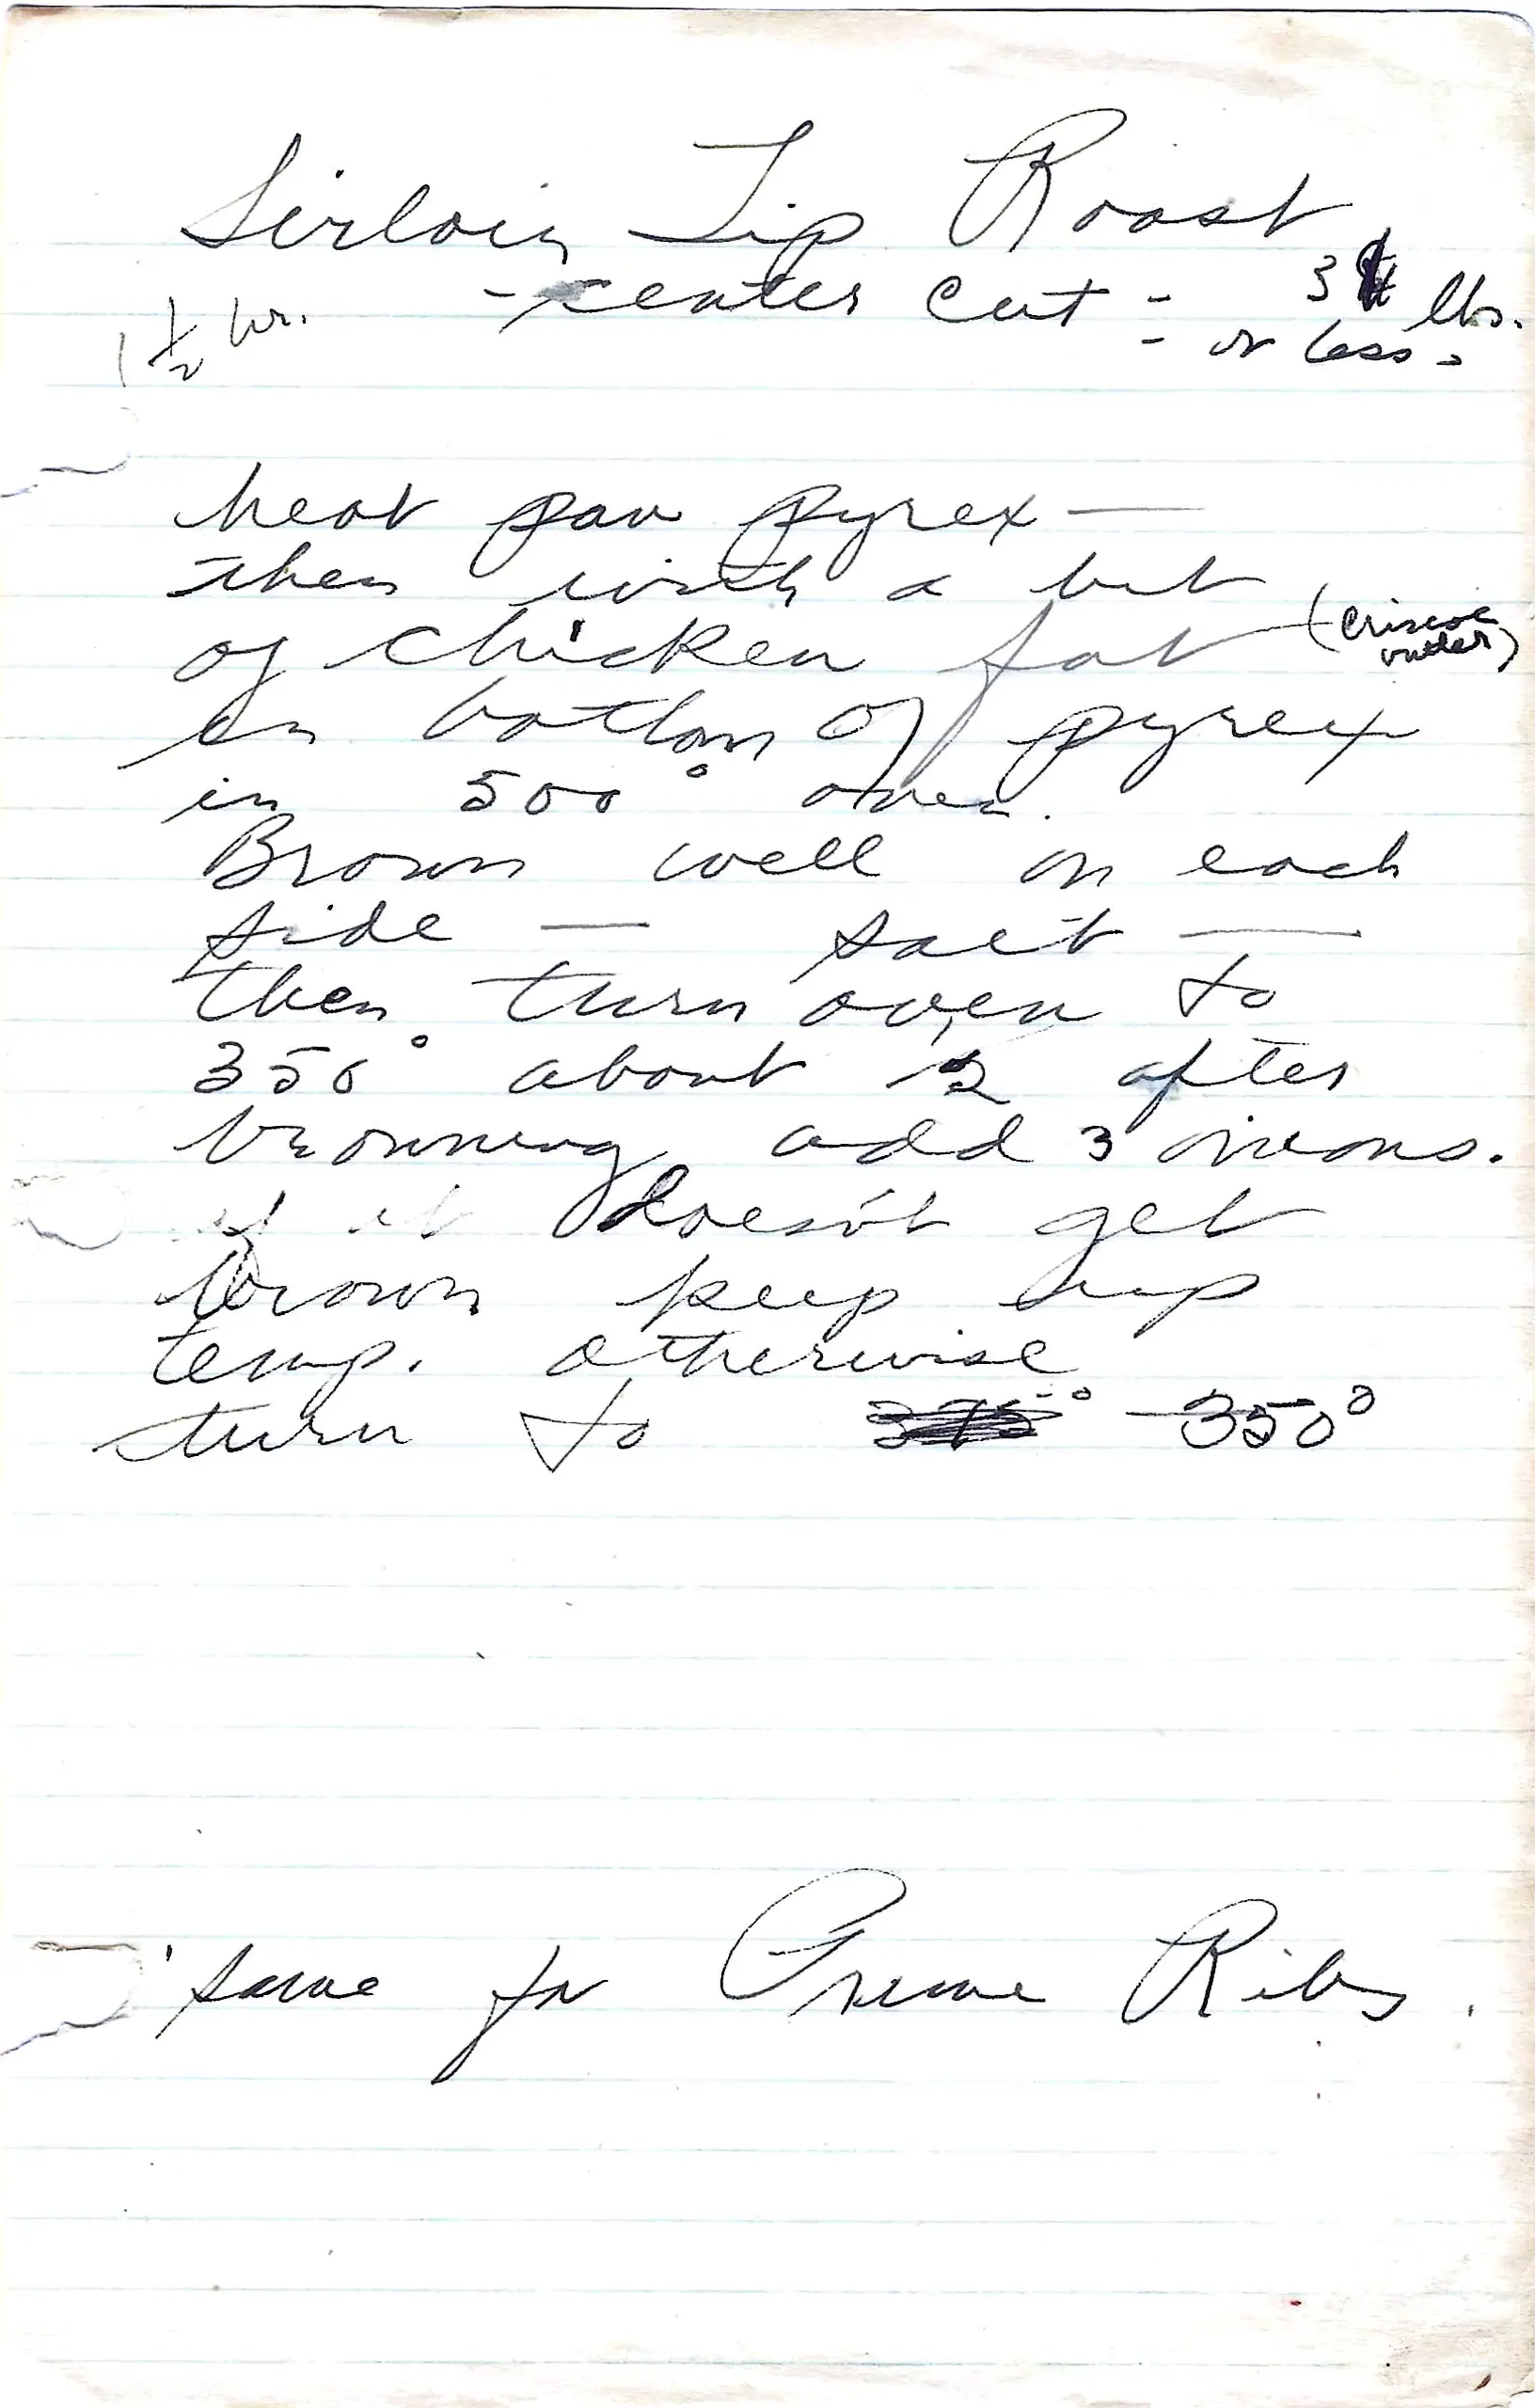 Sirloin Tip Roast
- center cut = 3 lbs.
1 1/2 hr. or less -
heat pan pyrex —
then with a bit
of chicken fat (criscoe
butter)
in bottom of pyrex
in 500° oven.
Brown well on each
side — salt —
then turn oven to
350° about 2 after
browning add 3 onions.
if it doesn't get
brown keep up
temp. otherwise
turn to 375° - 350°
same for Prime Ribs.